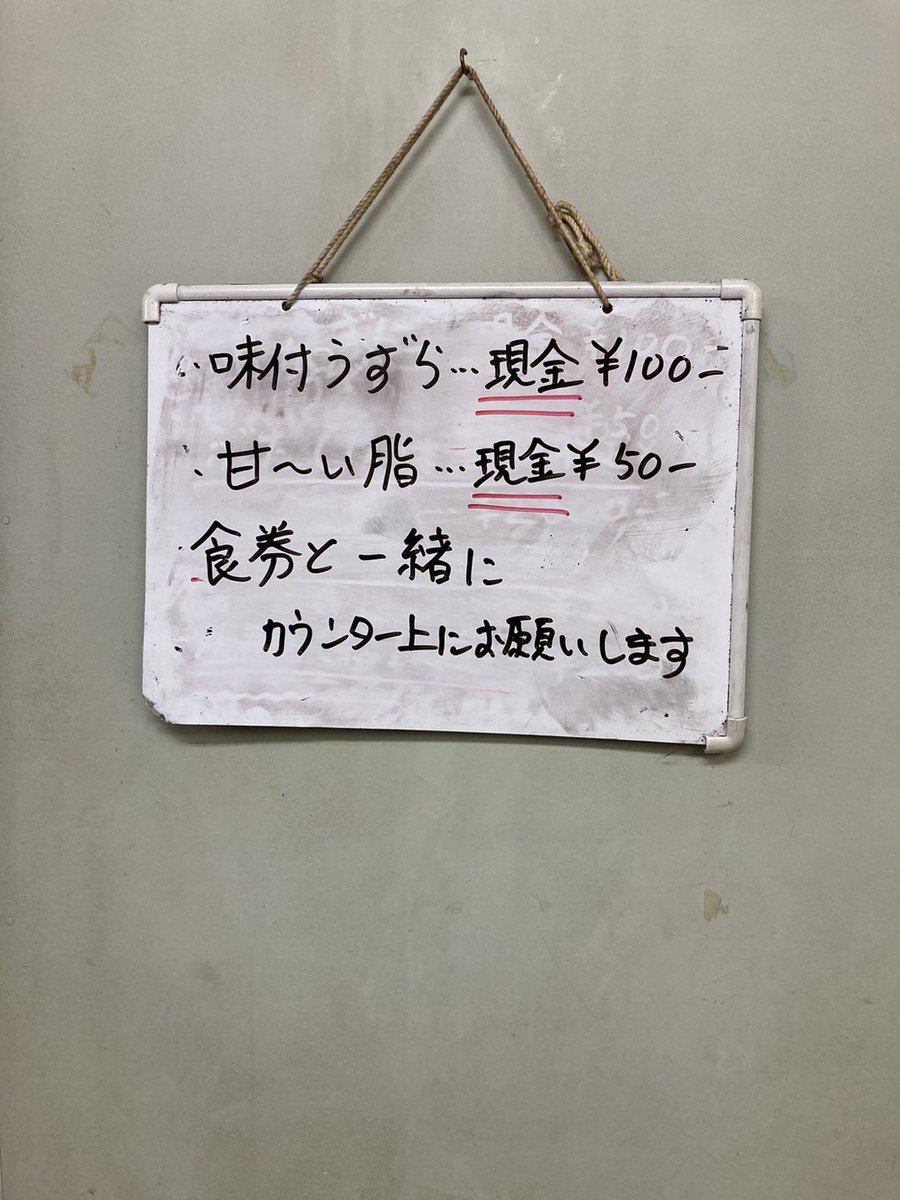 ・味付うずら…現金¥100-
・甘〜い脂…現金¥50-
食券と一緒に
カウンター上にお願いします